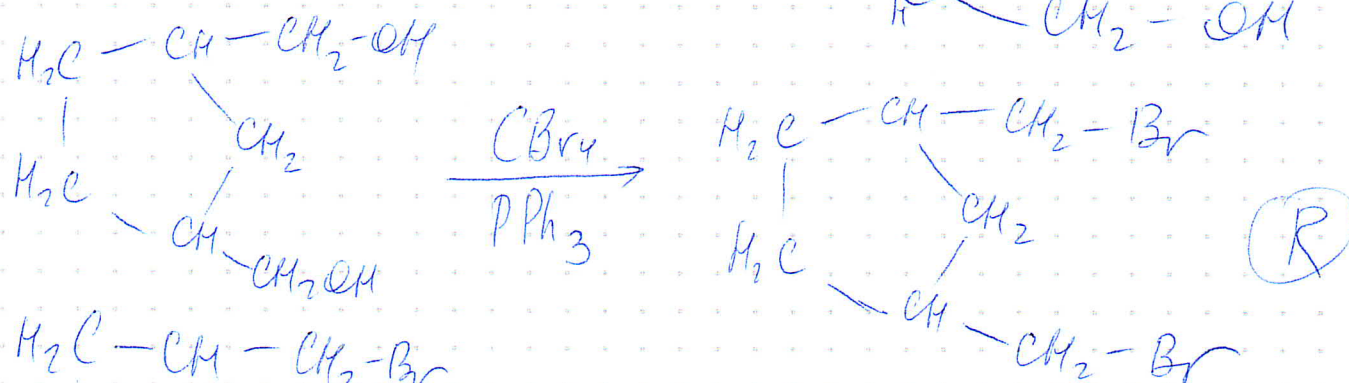 H — CH2 - OH
H2C — CH — CH2 - OH
CH2
H2C
CH
CH2OH
CBr4
PPh3
H2C — CH — CH2 - Br
CH2
H2C
CH
CH2 - Br
R
H2C — CH — CH2 - Br